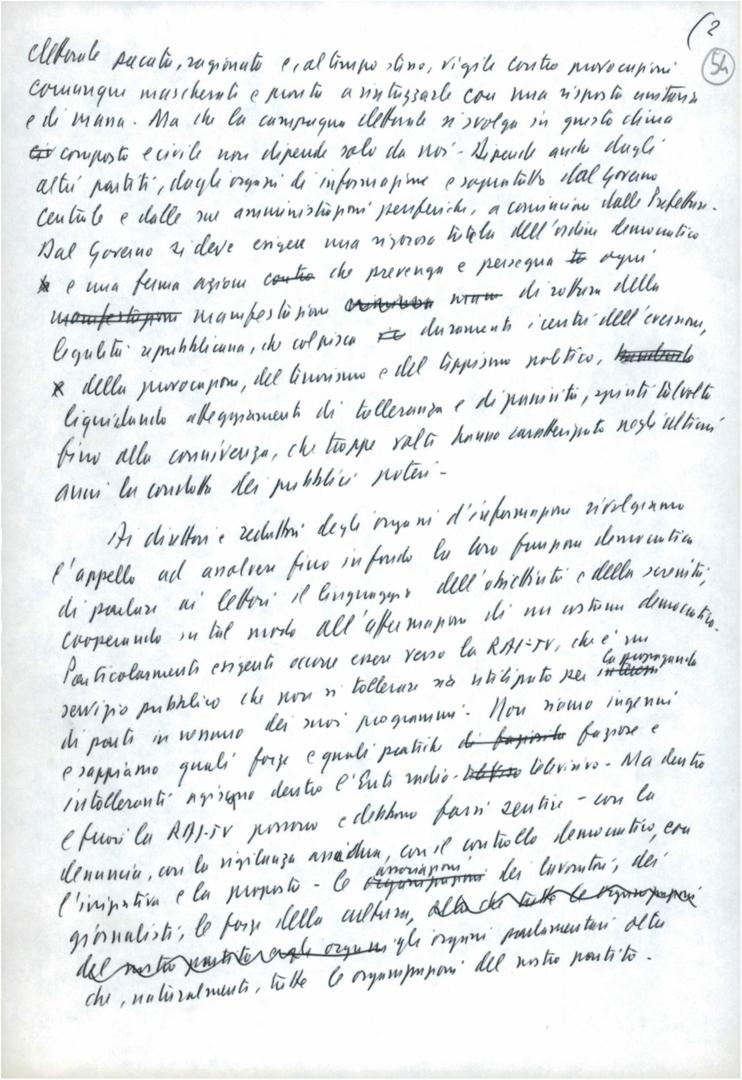 (2
54
elettorale pacata, ragionata e, al tempo stesso, vigile contro provocazioni
comunque mascherate e pronta a rintuzzarle con una risposta unitaria
e di massa. Ma che la campagna elettorale si svolga in questo clima
composto e civile non dipende solo da noi. Dipende anche dagli
altri partiti, dagli organi di informazione e soprattutto dal Governo
centrale e dalle sue amministrazioni periferiche, a cominciare dalle Prefetture.
Dal Governo si deve esigere una rigorosa tutela dell'ordine democratico
e una ferma azione contro che prevenga e persegua ogni
manifestazioni manifestazione di rottura della
legalità repubblicana, che colpisca duramente i centri dell'eversione,
della provocazione, del terrorismo e del teppismo politico,
liquidando atteggiamenti di tolleranza e di passività, spinti talvolta
fino alla connivenza, che troppe volte hanno caratterizzato negli ultimi
anni la condotta dei pubblici poteri.
Ai direttori e redattori degli organi d'informazione rivolgiamo
l'appello ad assolvere fino in fondo la loro funzione democratica
di parlare ai lettori il linguaggio dell'obiettività e della serenità,
cooperando in tal modo all'affermazione di un costume democratico.
Particolarmente esigenti occorre essere verso la RAI-TV, che è un
servizio pubblico che non si tollerare sia utilizzato per la propaganda
di parte in nessuno dei suoi programmi. Non siamo ingenui
e sappiamo quali forze e quali pratiche faziose e
intolleranti agiscono dentro l'Ente radio-televisivo. Ma dentro
e fuori la RAI-TV possono e debbono farsi sentire - con la
denuncia, con la vigilanza assidua, con il controllo democratico, con
l'iniziativa e la proposta - le organizzazioni associazioni dei lavoratori, dei
giornalisti, le forze della cultura, oltre che tutte le organizzazioni
del nostro partito negli organi gli organi parlamentari oltre
che, naturalmente, tutte le organizzazioni del nostro partito.